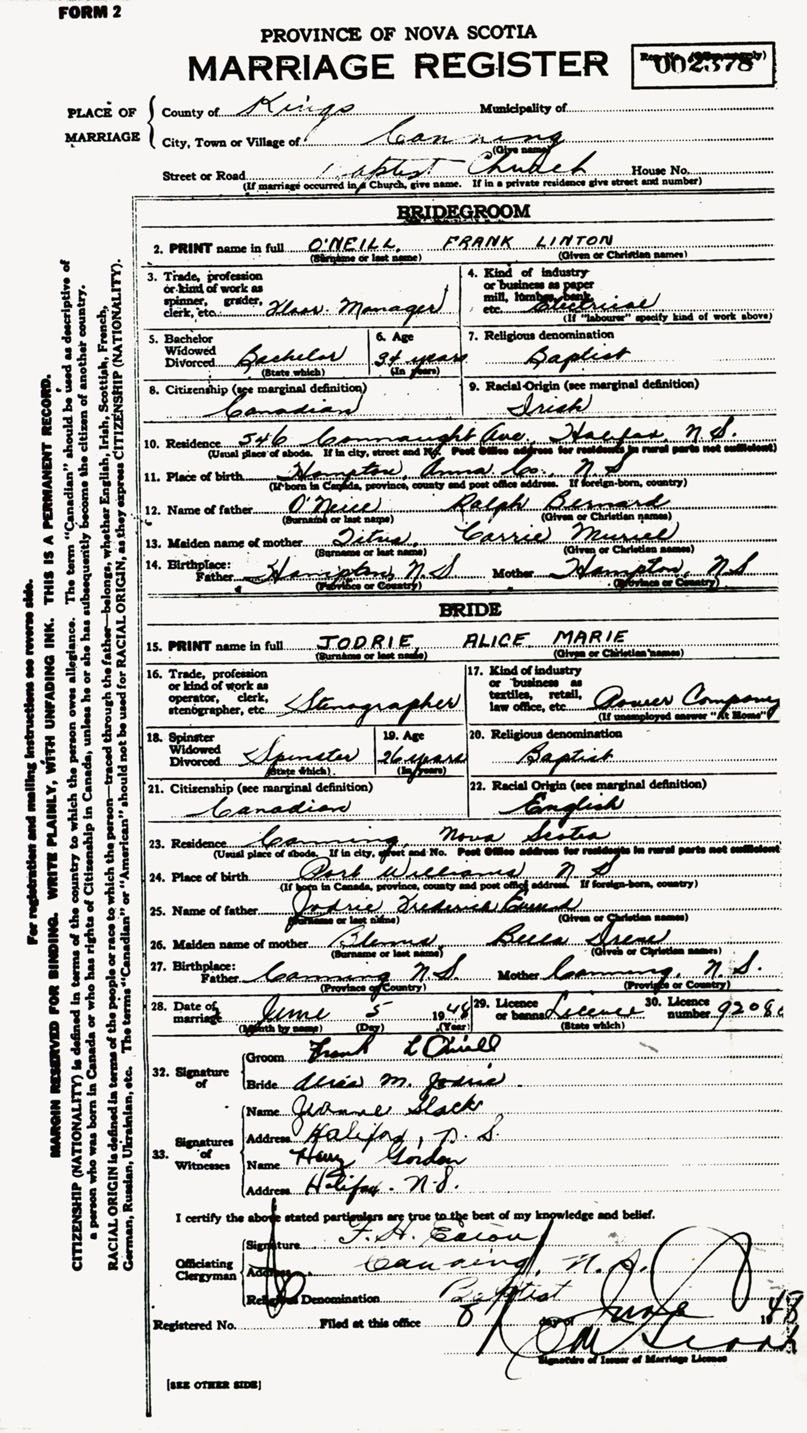 FORM 2
PROVINCE OF NOVA SCOTIA
MARRIAGE REGISTER
002378
PLACE OF MARRIAGE
County of Kings Municipality of
City, Town or Village of Canning
(Give name)
Street or Road Baptist Church House No.
(If marriage occurred in a Church, give name. If in a private residence give street and number)
BRIDEGROOM
2. PRINT name in full O'NEILL, FRANK LINTON
(Surname or last name) (Given or Christian names)
3. Trade, profession or kind of work as spinner, grader, clerk, etc. Floor Manager
4. Kind of industry or business as paper mill, lumber, bank, etc. Electrical
(If "labourer" specify kind of work above)
5. Bachelor Widowed Divorced Bachelor
(State which)
6. Age 34 years
(In years)
7. Religious denomination
Baptist
8. Citizenship (see marginal definition)
Canadian
9. Racial Origin (see marginal definition)
Irish
10. Residence 546 Connaught Ave, Halifax, N.S.
(Usual place of abode. If in city, street and No. Post Office address for residents in rural parts not sufficient
11. Place of birth Hampton, Anna Co., N S
(If born in Canada, province, county and post office address. If foreign-born, country)
12. Name of father O'Neill Ralph Bernard
(Surname or last name) (Given or Christian names)
13. Maiden name of mother Titus, Carrie Muriel
(Surname or last name) (Given or Christian names)
14. Birthplace:
Father Hampton, N.S Mother Hampton, N.S
(Province or Country) (Province or Country)
BRIDE
15. PRINT name in full JODRIE, ALICE MARIE
(Surname or last name) (Given or Christian names)
16. Trade, profession or kind of work as operator, clerk, stenographer, etc. Stenographer
17. Kind of industry or business as textiles, retail, law office, etc. Power Company
(If unemployed answer "At Home")
18. Spinster Widowed Divorced Spinster
(State which)
19. Age 26 years
(In years)
20. Religious denomination
Baptist
21. Citizenship (see marginal definition)
Canadian
22. Racial Origin (see marginal definition)
English
23. Residence Canning, Nova Scotia
(Usual place of abode. If in city, street and No. Post Office address for residents in rural parts not sufficient
24. Place of birth Port Williams N S
(If born in Canada, province, county and post office address. If foreign-born, country)
25. Name of father Jodrie Frederick
(Surname or last name) (Given or Christian names)
26. Maiden name of mother Bella Irene
(Surname or last name) (Given or Christian names)
27. Birthplace:
Father Canning N.S. Mother Canning, N.S.
(Province or Country) (Province or Country)
28. Date of marriage June 5 1948
(Month by name) (Day) (Year)
29. Licence or banns Licence
(State which)
30. Licence number 9208
32. Signature of
Groom Frank L O'Neill
Bride Alice M. Jodrie
33. Signatures of Witnesses
Name Slack
Address Halifax, N.S.
Name Gordon
Address Halifax. N.S.
I certify the above stated particulars are true to the best of my knowledge and belief.
Officiating Clergyman
Signature F. H. Eaton
Address Canning, N.S.
Religious Denomination Baptist
Registered No. Filed at this office 8 day of June 1948
Signature of Issuer of Marriage Licence
[SEE OTHER SIDE]
For registration and mailing instructions see reverse side.
MARGIN RESERVED FOR BINDING. WRITE PLAINLY, WITH UNFADING INK. THIS IS A PERMANENT RECORD.
CITIZENSHIP (NATIONALITY) is defined in terms of the country to which the person owes allegiance. The term "Canadian" should be used as descriptive of
a person who was born in Canada or who has rights of Citizenship in Canada, unless he or she has subsequently become the citizen of another country.
RACIAL ORIGIN is defined in terms of the people or race to which the person—traced through the father—belongs, whether English, Irish, Scottish, French,
German, Russian, Ukrainian, etc. The terms "Canadian" or "American" should not be used for RACIAL ORIGIN, as they express CITIZENSHIP (NATIONALITY).